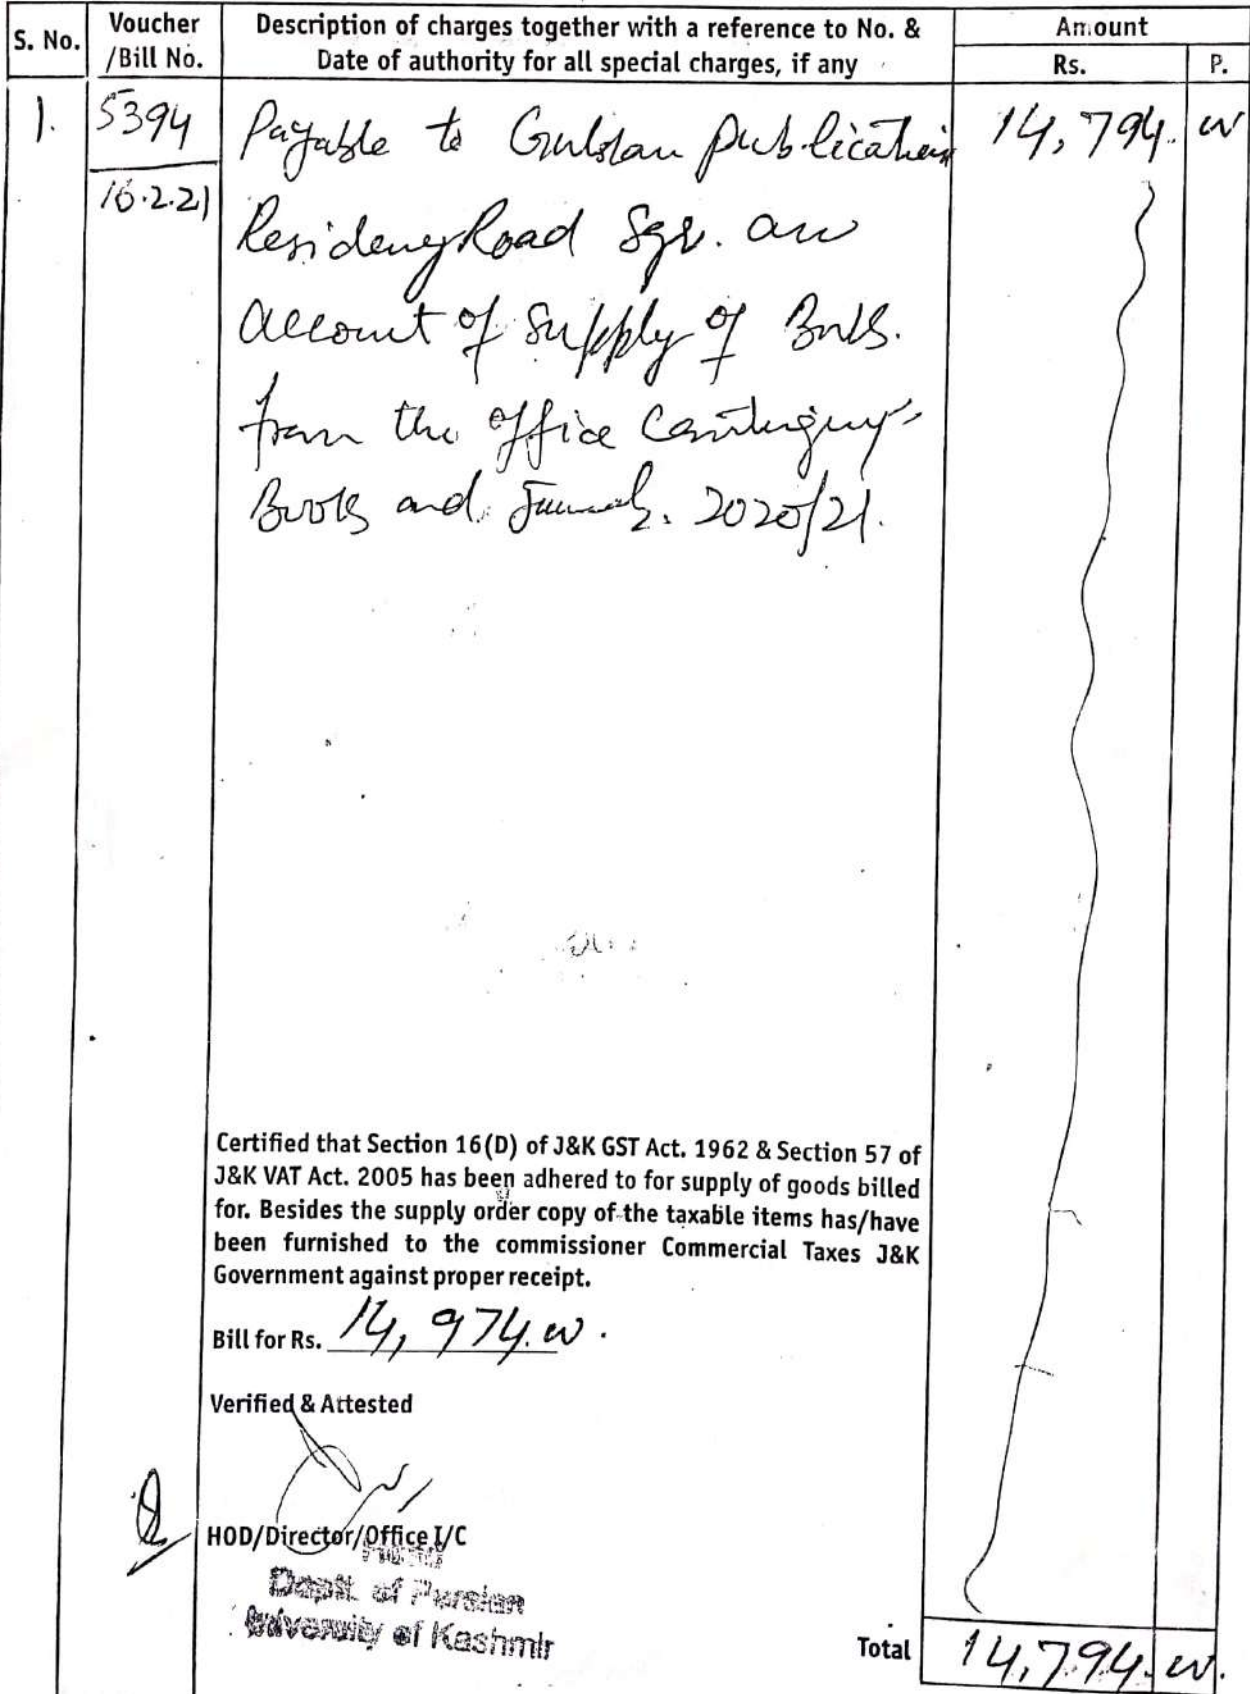 S. No.
Voucher
/Bill No.
Description of charges together with a reference to No. &
Date of authority for all special charges, if any
Amount
Rs.
P.
1.
5394
16.2.21
Payable to Gulshan Publication
Residency Road Sgr. on
account of supply of Books.
from the office Contingency
Books and Journals. 2020/21.
14,794.
00
Certified that Section 16(D) of J&K GST Act. 1962 & Section 57 of
J&K VAT Act. 2005 has been adhered to for supply of goods billed
for. Besides the supply order copy of the taxable items has/have
been furnished to the commissioner Commercial Taxes J&K
Government against proper receipt.
Bill for Rs. 14,974.00.
Verified & Attested
HOD/Director/Office I/C
Deptt. of Persian
University of Kashmir
Total
14,794.00.